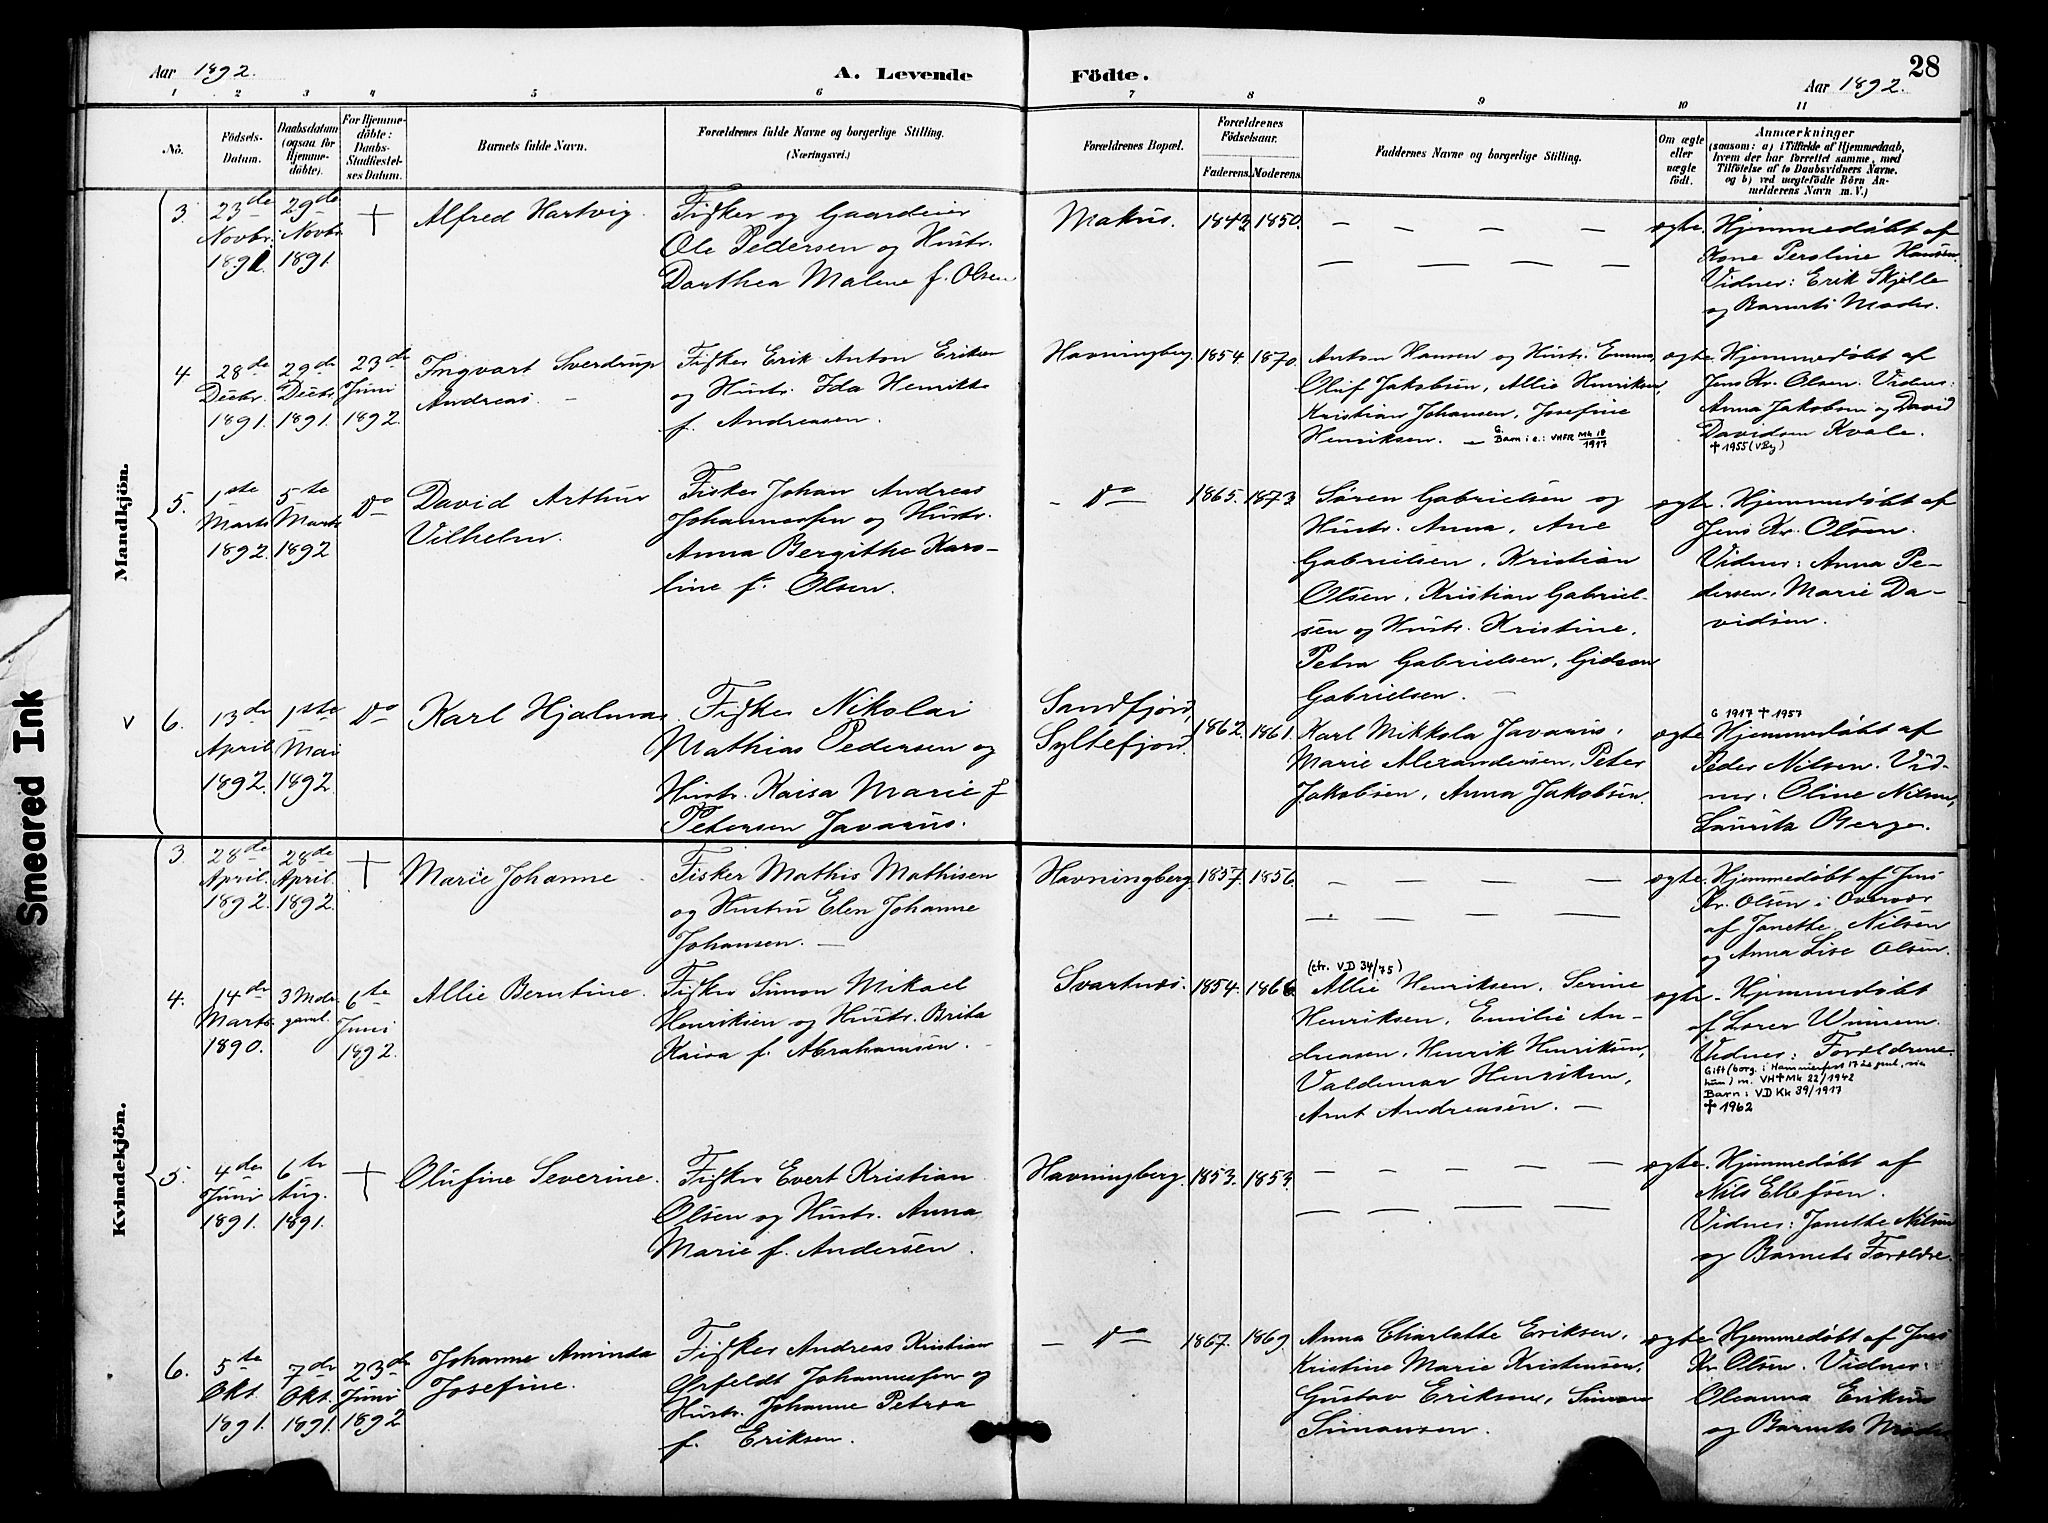 Aar 1892.
A. Levende
Födte.
28
Aar 1892.
1 2 3 4 5 6 7 8 9 10 11
No.
Födsels-
Datum.
Daabsdatum
(ogsaa for
Hjemme-
döbte).
For Hjemme-
döbte:
Daabs-
Stadfæstel-
ses Datum.
Barnets fulde Navn.
Forældrenes fulde Navne og borgerlige Stilling.
(Næringsvei.)
Forældrenes Bopæl.
Forældrenes
Födselsaar.
Faderens. Moderens.
Faddernes Navne og borgerlige Stilling.
Om ægte
eller
uægte
födt.
Anmærkninger
(saasom: a) i Tilfælde af Hjemmedaab,
hvem der har forrettet samme, med
Tilföielse af to Daabsvidners Navne.
og b) ved uægtefödte Börn An-
melderens Navn m. V.)
Mandkjön.
3. 23de Novbr. 1891. 29de Novbr. 1891. † Alfred Hartvig.
Fisker og Gaardeier
Ole Pedersen og Hustr.
Dorthea Malene f. Olsen
Makus. 1843 1850. — — — — —
— — — —
ægte. Hjemmedøbt af
Kone Peroline Hansen.
Vidner: Erik Skjelle
og Barnets Moder.
4 28de Decbr. 1891. 29de Decbr. 1891. 23de Juni 1892. Ingvart Sverdrup
Andreas. –
Fisker Erik Anton Eriksen
og Hustr. Ida Henrikke
f. Andreasen.
Havningberg. 1854. 1870.
Anton Hansen og Hustr. Emma,
Oluf Jakobsen, Allie Henriksen,
Kristian Johansen, Josefine
Henriksen. – G. Barn i e.: VHFR Mk 18/1917
ægte. Hjemmedøbt af
Jens Kr. Olsen. Vidner:
Anna Jakobsen og David
Davidsen Kvale.
† 1955 (VBy)
5. 1ste Marts 1892. 5te Marts 1892 Do David Arthur
Vilhelm.
Fisker Johan Andreas
Johannessen og Hustr.
Anna Bergithe Karo-
line f. Olsen.
– Do 1865. 1873.
Søren Gabrielsen og
Hustr. Anna, Ane
Gabrielsen, Kristian
Olsen, Kristian Gabriel-
sen og Hustr. Kristine,
Petra Gabrielsen, Gideon
Gabrielsen. –
ægte. Hjemmedøbt af
Jens Kr. Olsen.
Vidner: Anna Pe-
dersen, Marie Da-
vidsen.
v 6. 13de April 1892. 1ste Mai 1892. Do Karl Hjalmar.
Fisker Nikolai
Mathias Pedersen og
Hustr. Kaisa Marie f
Petersen Javarus.
Sandfjord,
Syltefjord. 1862. 1861.
Karl Mikkola Javarus,
Marie Alexandersen, Peter
Jakobsen, Anna Jakobsen.
G 1917 † 1957
ægte. Hjemmedøbt af
Peder Nilsen. Vid-
ner: Oline Nilsen,
Lauritz Berge.
Kvindekjön.
3. 28de April 1892. 28de April. 1892. † Marie Johanne
Fisker Mathis Mathisen
og Hustru Elen Johanne
Johansen. –
Havningberg. 1857. 1856. — — — — —
— — — —
ægte. Hjemmedøbt af Jens
Kr. Olsen i Overvær
af Janette Nilsen
og Anna Lise Olsen.
4. 14de Marts 1890. 3 Mdr. gaml. 6te Juni 1892. Allie Berntine.
Fisker Simon Mikael
Henriksen og Hustr. Brita
Kaisa f. Abrahamsen.
Svartnæs. 1854. 1866.
(cfr. VD 34/75)
Allie Henriksen, Serine
Henriksen, Emilie An-
dreasen, Henrik Henriksen,
Valdemar Henriksen,
Arnt Andreasen. –
ægte. Hjemmedøbt
af Lærer
Vidner: Forældrene.
Gift (borg. i Hammerfest 17 år gml,
hun) m. VH † Mk 22/1942
Barn: VD Kk 39/1917
† 1962
5. 4de Juni 1891. 6te Aug. 1891. † Olufine Severine.
Fisker Evert Kristian
Olsen og Hustr. Anna
Marie f. Andersen.
Havningberg. 1853. 1853. — — — — —
— — — —
ægte. Hjemmedøbt af
Nils Ellefsen.
Vidner: Janette Nilsen
og Barnets Forældre.
6. 5te Okt. 1891. 7de Okt. 1891. 23de Juni 1892 Johanne Aminda
Josefine.
Fisker Andreas Kristian
Ørfeldt Johannessen og
Hustr. Johanne Petrea
f. Eriksen.
– Do 1867. 1869
Anna Charlotte Eriksen,
Kristine Marie Kristensen,
Gustav Eriksen, Simon
Simonsen.
ægte. Hjemmedøbt af Jens
Kr. Olsen. Vidner:
Oleanna Eriksen
og Barnets Moder
Smeared Ink